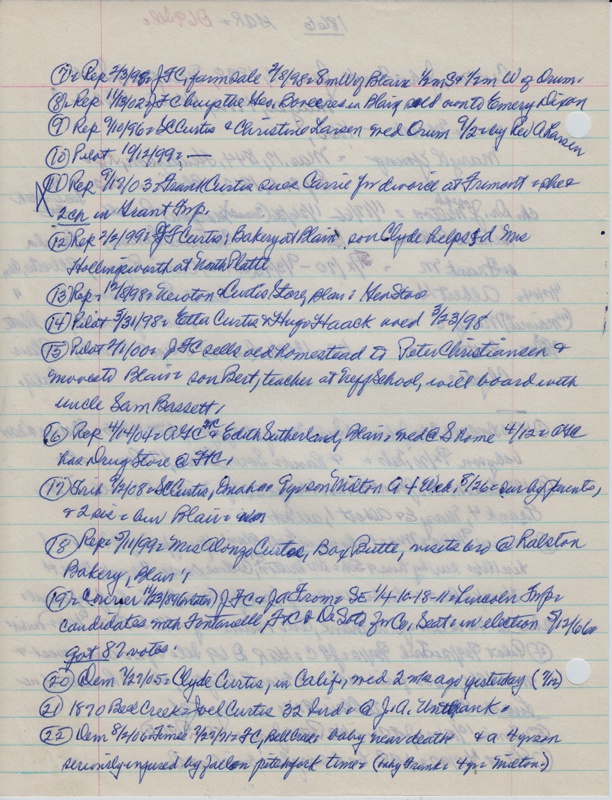 (7) Rep 2/3/98= JFC, farm sale 2/8/98= 8m W of Blair 1/2m S & 1/2m W of Orum.
(8) Rep 11/13/02= JFC buys the Geo Roncenes in Blair sold own to Emery Dixon
(9) Rep 9/10/96= SC Curtis & Christine Larsen med Orum 9/2= by Rev A Larsen
(10) Pilot 10/12/99= —
(11) Rep 9/17/03= Frank Curtis sues Carrie for divorce at Fremont = she &
2 ch in Grant Twp.
(12) Rep 2/2/99= JF Curtis, Bakery at Blair son Clyde helps & d Mrs
Hollingsworth at North Platte
(13) Rep= 12/8/98= Newton & Curtis Store, Blair = Gen Store
(14) Pilot 3/31/98= Etta Curtis & Hugo Haack wed 3/23/98
(15) Pilot 2/1/00= JFC sells old homestead to Peter Christiansen &
moves to Blair = son Bert, teacher at Neff School, will board with
uncle Sam Bassett,
(16) Rep 4/14/04= AYC & Edith Sutherland, Blair = med @ S home 4/12 = AYC
has Drug Store @ FtC,
(17) SC Curtis, Omaha = 9 yr son Milton = sur by parents,
& 2 sis = bur Blair =
(18) Rep= 5/11/99= Mrs Alonzo Curtis, Box Butte, visits bro @ Ralston
Bakery, Blair,
(19) JFC & Jas From = SE 1/4-10-18-11= Lincoln Twp=
candidates math Fontanelle, FtC & DeSoto for Co, Seat = in election 5/12/66=
got 82 votes.
(20) Dem 7/27/05= Clyde Curtis, in Calif, wed 2 m's ago yesterday
(21) 1870 Bell Creek= Joel Curtis 32 Ind = @ J.A. Unthank =
(22) Dem 8/2/06= Times FC, Bell Creek baby near death & a 4 yr son
seriously injured by fall on pitchfork tines = (baby Frank = 4 yr= Milton.)